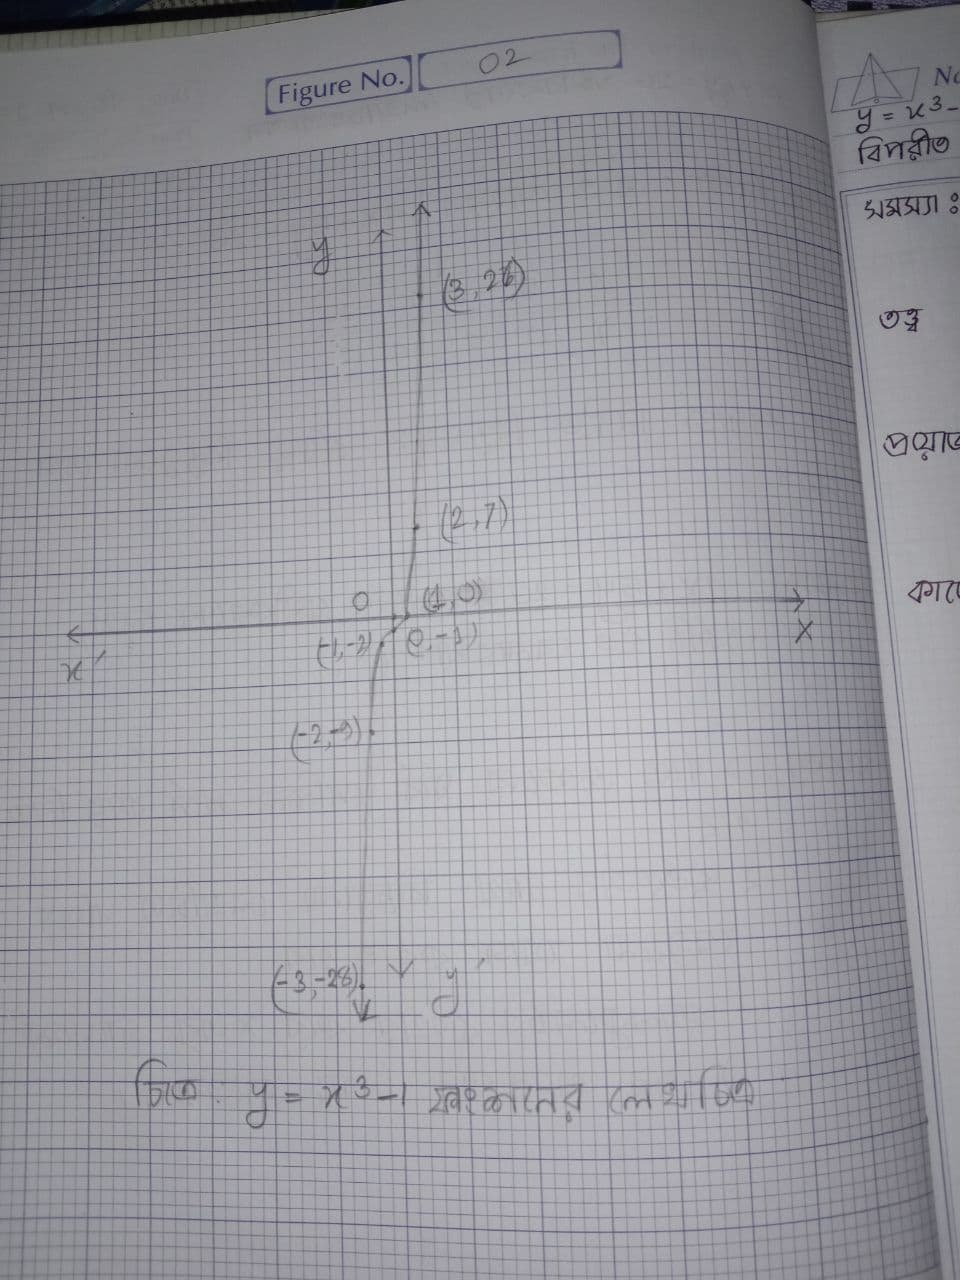 Figure No. 02
y
(3, 26)
(2, 7)
0 (1, 0)
x' (-1, -2) (0, -1) X
(-2, -9)
(-3, -28) y'
চিত্র : y = x³-1 ফাংশনের লেখচিত্র
No
y = x³-
বিপরীত
সমস্যা :
তত্ত্ব